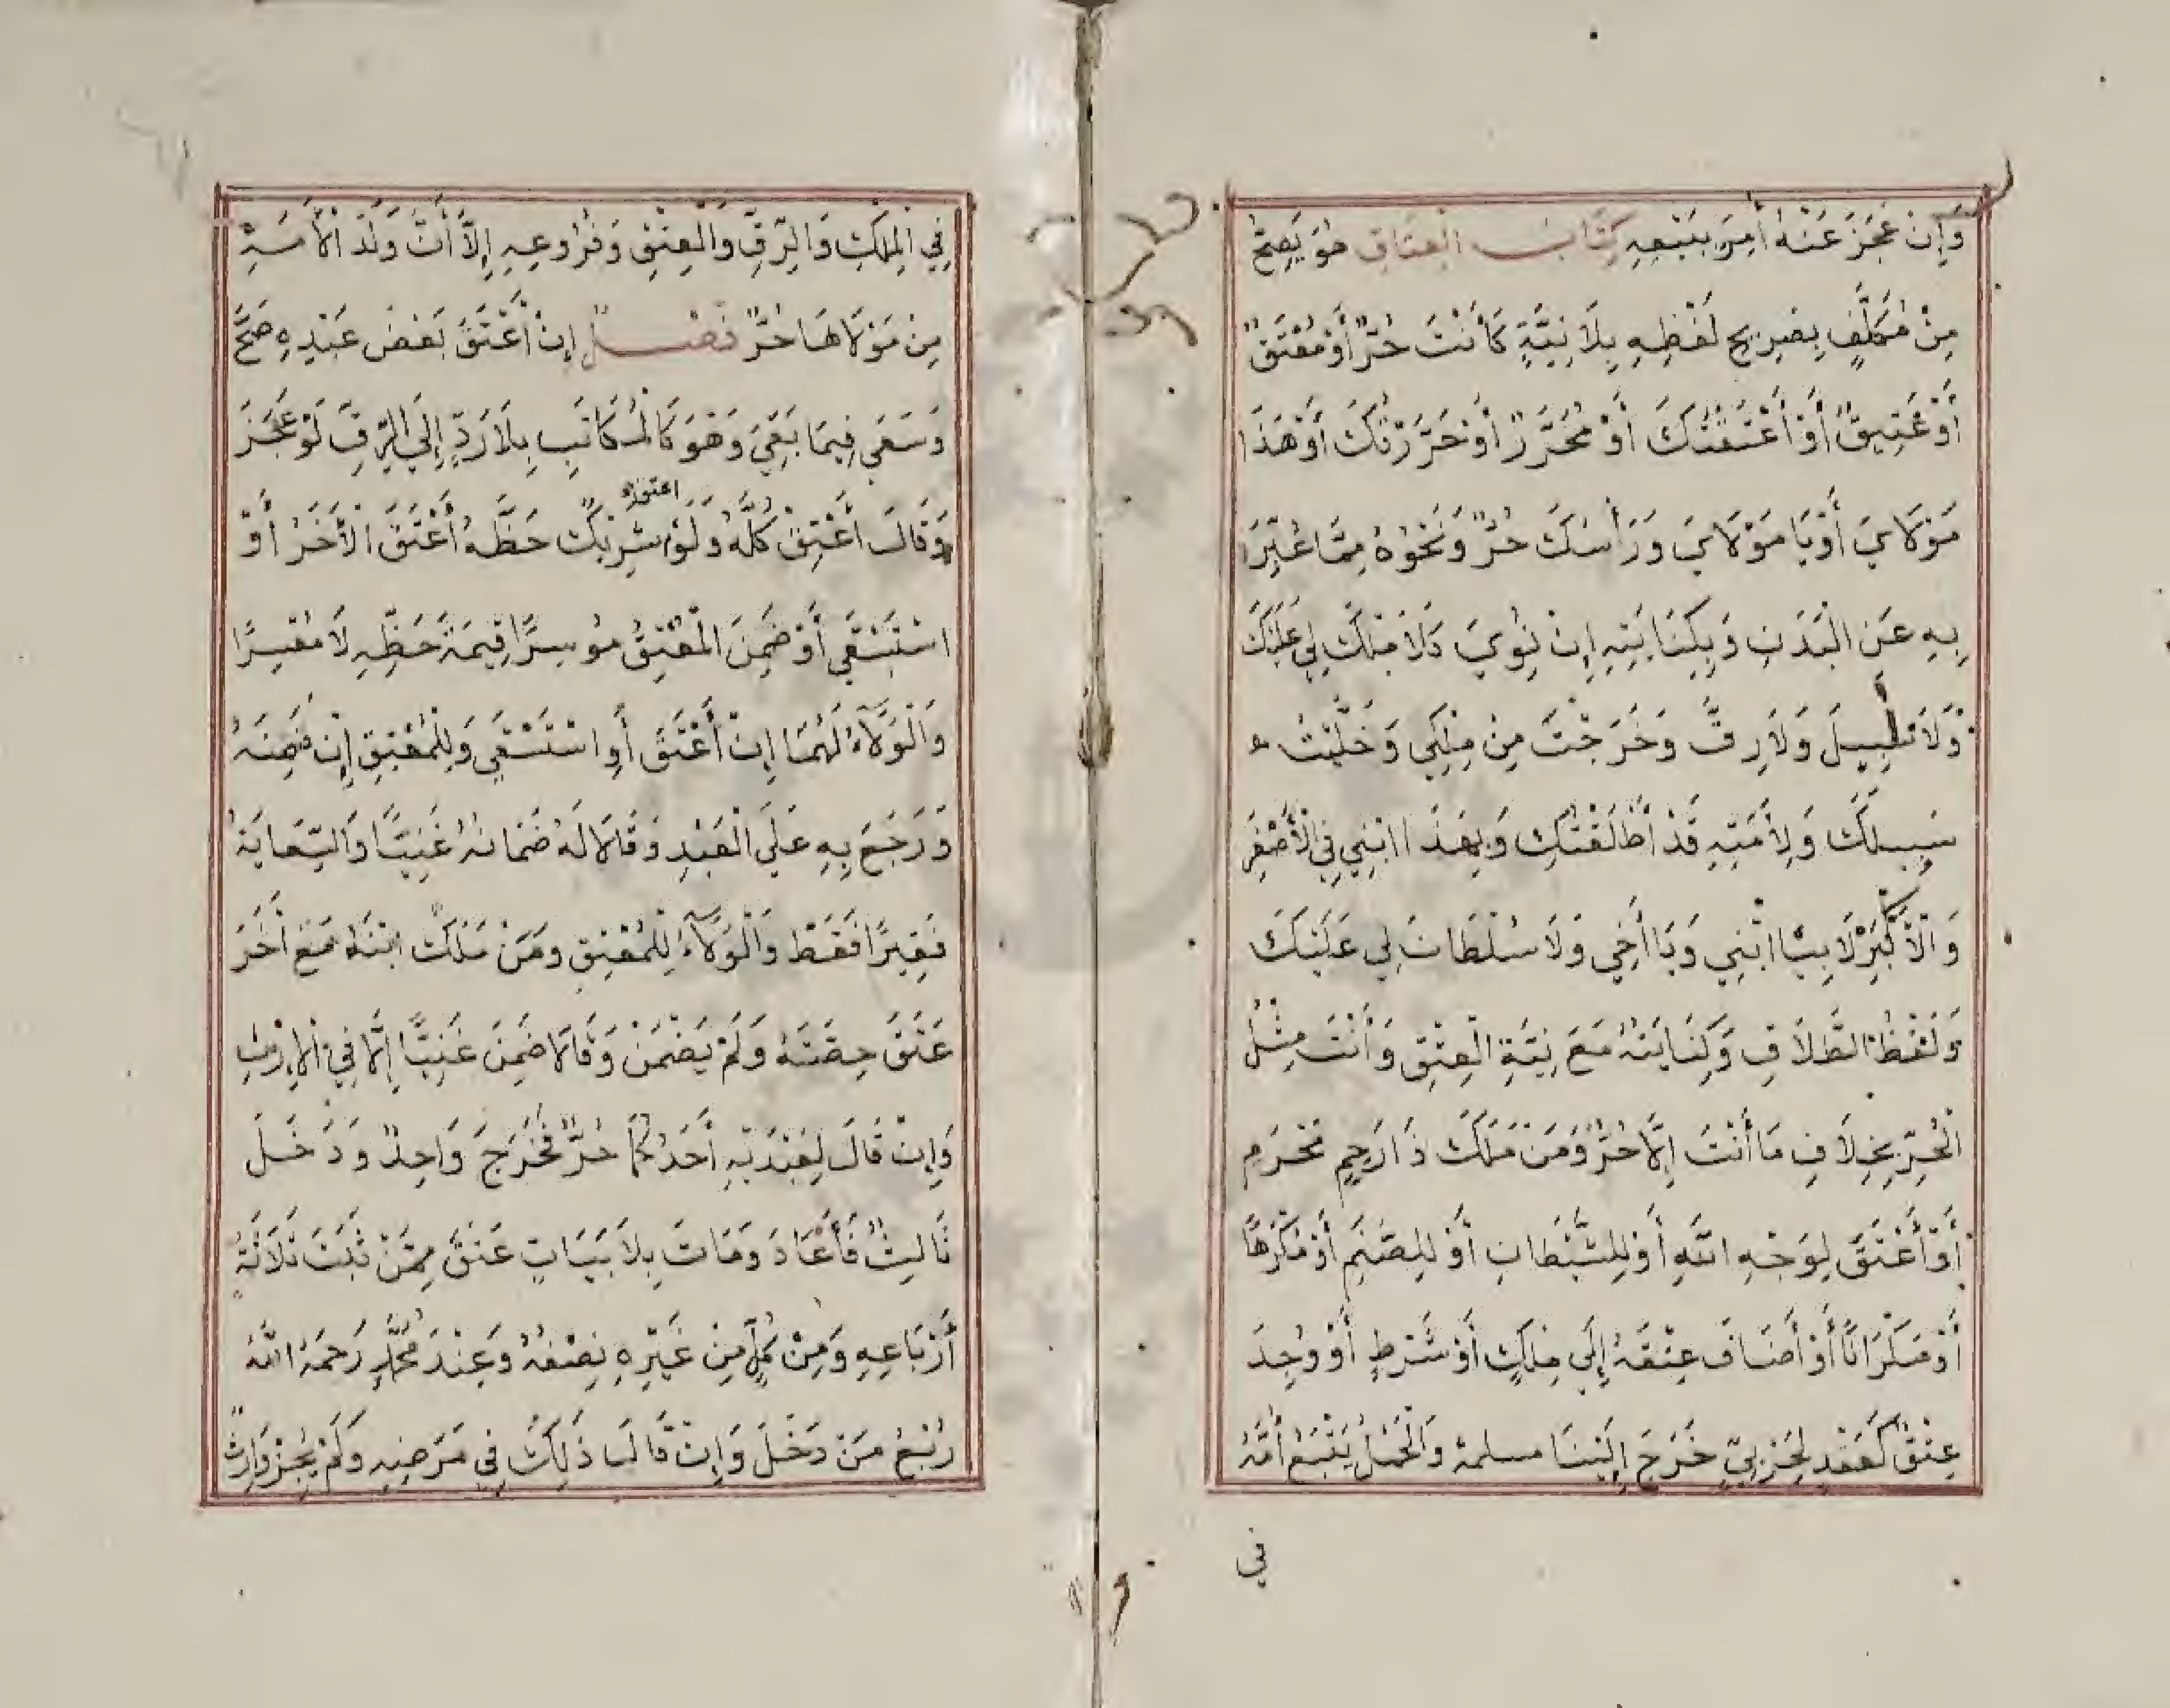 وَإِنْ عَجَزَ عَنْهُ أُمِرَ بِبَيْعِهِ كِتَابُ الْعِتَاقِ هُوَ يَصِحُّ
مِنْ مُكَلَّفٍ بِصَرِيحِ لَفْظِهِ بِلَا نِيَّةٍ كَأَنْتَ حُرٌّ أَوْ مُعْتَقٌ
أَوْ عَتِيقٌ أَوْ أَعْتَقْتُكَ أَوْ مُحَرَّرٌ أَوْ حَرَّرْتُكَ أَوْ هَذَا
مَوْلَايَ أَوْ يَا مَوْلَايَ وَرَأْسُكَ حُرٌّ وَنَحْوُهُ مِمَّا عُبِّرَ
بِهِ عَنِ الْبَدَنِ وَبِكِنَايَتِهِ إِنْ نُوِيَ كَلَا مِلْكَ لِي عَلَيْكَ
وَلَا سَبِيلَ وَلَا رِقَّ وَخَرَجْتَ مِنْ مِلْكِي وَخَلَّيْتُ
سَبِيلَكَ وَلِأَمَتِهِ قَدْ أَطْلَقْتُكِ وَبِهَذَا ابْنِي فِي الْأَصْغَرِ
وَالْأَكْبَرِ لَا بِيَا ابْنِي وَيَا أَخِي وَلَا سُلْطَانَ لِي عَلَيْكَ
وَلَفْظُ الطَّلَاقِ وَكِنَايَتُهُ مَعَ نِيَّةِ الْعِتْقِ وَأَنْتَ مِثْلُ
الْحُرِّ بِخِلَافِ مَا أَنْتَ إِلَّا حُرٌّ وَمَنْ مَلَكَ ذَا رَحِمٍ مَحْرَمٍ
أَوْ أَعْتَقَ لِوَجْهِ اللَّهِ أَوْ لِلشَّيْطَانِ أَوْ لِلصَّنَمِ أَوْ مُكْرَهًا
أَوْ سَكْرَانًا أَوْ أَضَافَ عِتْقَهُ إِلَى مِلْكٍ أَوْ شَرْطٍ أَوْ وُجِدَ
عِتْقٌ كَعَبْدٍ لِحَرْبِيٍّ خَرَجَ إِلَيْنَا مسلمة وَالْحَمْلُ يَتْبَعُ أُمَّهُ
في
فِي الْمِلْكِ وَالرِّقِّ وَالْعِتْقِ وَفُرُوعِهِ إِلَّا أَنَّ وَلَدَ الْأَمَةِ
مِنْ مَوْلَاهَا حُرٌّ فَصْلٌ إِنْ أَعْتَقَ بَعْضَ عَبْدِهِ صَحَّ
وَسَعَى فِيمَا بَقِيَ وَهُوَ كَالْمُكَاتَبِ بِلَا رَدٍّ إِلَى الرِّقِّ لَوْ عَجَزَ
وَقَالَا أُعْتِقَ كُلُّهُ وَلَوْ اعتق شَرِيكٌ حَظَّهُ أَعْتَقَ الْآخَرُ أَوْ
اسْتَسْعَى أَوْ ضَمِنَ الْمُعْتِقُ مُوسِرًا قِيمَةَ حَظِّهِ لَا مُعْسِرًا
وَالْوَلَاءُ لَهُمَا إِنْ أَعْتَقَ أَوِ اسْتَسْعَى وَلِلْمُعْتِقِ إِنْ ضَمِنَهُ
وَرَجَعَ بِهِ عَلَى الْعَبْدِ وَقَالَا لَهُ ضَمَانُهُ غَنِيًّا وَالسِّعَايَةُ
فَقِيرًا فَقَطْ وَالْوَلَاءُ لِلْمُعْتِقِ وَمَنْ مَلَكَ ابْنَهُ مَعَ آخَرَ
عَتَقَ حِصَّتُهُ وَلَمْ يَضْمَنْ وَقَالَا ضَمِنَ غَنِيًّا إِلَّا فِي الْإِرْثِ
وَإِنْ قَالَ لِعَبْدَيْهِ أَحَدُكُمَا حُرٌّ فَخَرَجَ وَاحِدٌ وَدَخَلَ
ثَالِثٌ فَأَعَادَ وَمَاتَ بِلَا بَيَانٍ عَتَقَ مِمَّنْ ثَبَتَ ثَلَاثَةُ
أَرْبَاعِهِ وَمِنْ كُلٍّ مِنْ غَيْرِهِ نِصْفُهُ وَعِنْدَ مُحَمَّدٍ رَحِمَهُ اللَّهُ
رُبْعُ مَنْ دَخَلَ وَإِنْ قَالَ ذَلِكَ فِي مَرَضِهِ وَلَمْ يُجِزْ وَارِثٌ